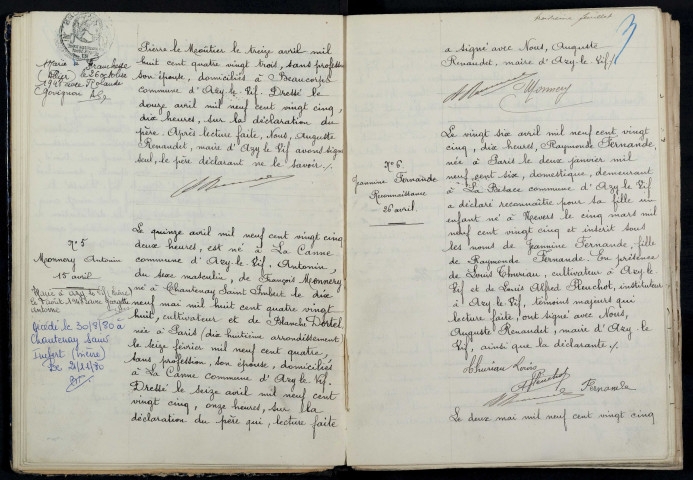 Pierre le Moûtier le treize avril mil
huit cent quatre vingt trois, sans profession
son épouse, domiciliés à Beaucorps
commune d'Azy-le-Vif. Dressé le
douze avril mil neuf cent vingt cinq,
dix heures, sur la déclaration du
père. Après lecture faite, Nous, Auguste
Renaudet, maire d'Azy-le-Vif avons signé
seul, le père déclarant ne le savoir.
Marié à Franchesse
(Allier) le 26 octobre
avec Rolande
N° 5
Monnery Antonin
15 avril
Marié à Azy-le-Vif (Nièvre)
décédé le 30/8/80 à
Chantenay Saint
Imbert (Nièvre)
Le 2/11/80
Le quinze avril mil neuf cent vingt cinq
deux heures, est né à La Canne
commune d'Azy-le-Vif, Antonin,
du sexe masculin, de François Monnery
né à Chantenay Saint Imbert le dix
neuf mai mil huit cent quatre vingt
huit, cultivateur et de Blanche Dortel
née à Paris (dix huitième arrondissement)
le seize février mil neuf cent quatre,
sans profession, son épouse, domiciliés
à La Canne commune d'Azy-le-Vif.
Dressé le seize avril mil neuf cent
vingt cinq, onze heures, sur la
déclaration du père qui, lecture faite
troisième feuillet
3
a signé avec Nous, Auguste
Renaudet, maire d'Azy-le-Vif.
Monnery
N° 6
Jeannine Fernande
Reconnaissance
26 avril.
Le vingt six avril mil neuf cent vingt
cinq, dix heures, Raymonde Fernande,
née à Paris le deux janvier mil
neuf cent six, domestique, demeurant
à La Besace commune d'Azy-le-Vif
a déclaré reconnaître pour sa fille un
enfant né à Nevers le cinq mars mil
neuf cent vingt cinq et inscrit sous
les noms de Jeannine Fernande, fille
de Raymonde Fernande. En présence
de Louis Thuriau, cultivateur à Azy-le-
Vif et de Louis Alfred Pluchot, instituteur
à Azy-le-Vif, témoins majeurs qui
lecture faite, ont signé avec Nous,
Auguste Renaudet, maire d'Azy-le-
Vif, ainsi que la déclarante.
Thuriau Louis
APluchot
Fernande
Le deux mai mil neuf cent vingt cinq